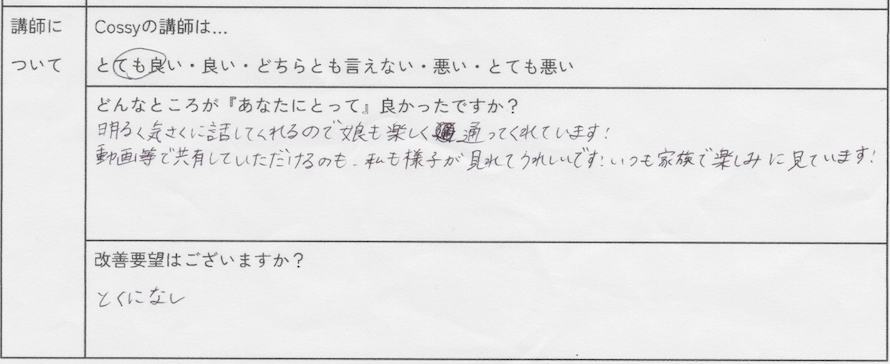 講師に
ついて
Cossyの講師は...
とても良い・良い・どちらとも言えない・悪い・とても悪い
どんなところが『あなたにとって』良かったですか?
明るく気さくに話してくれるので娘も楽しく通ってくれています!
動画等で共有していただけるのも、私も様子が見れてうれしいです!いつも家族で楽しみに見ています!
改善要望はございますか?
とくになし